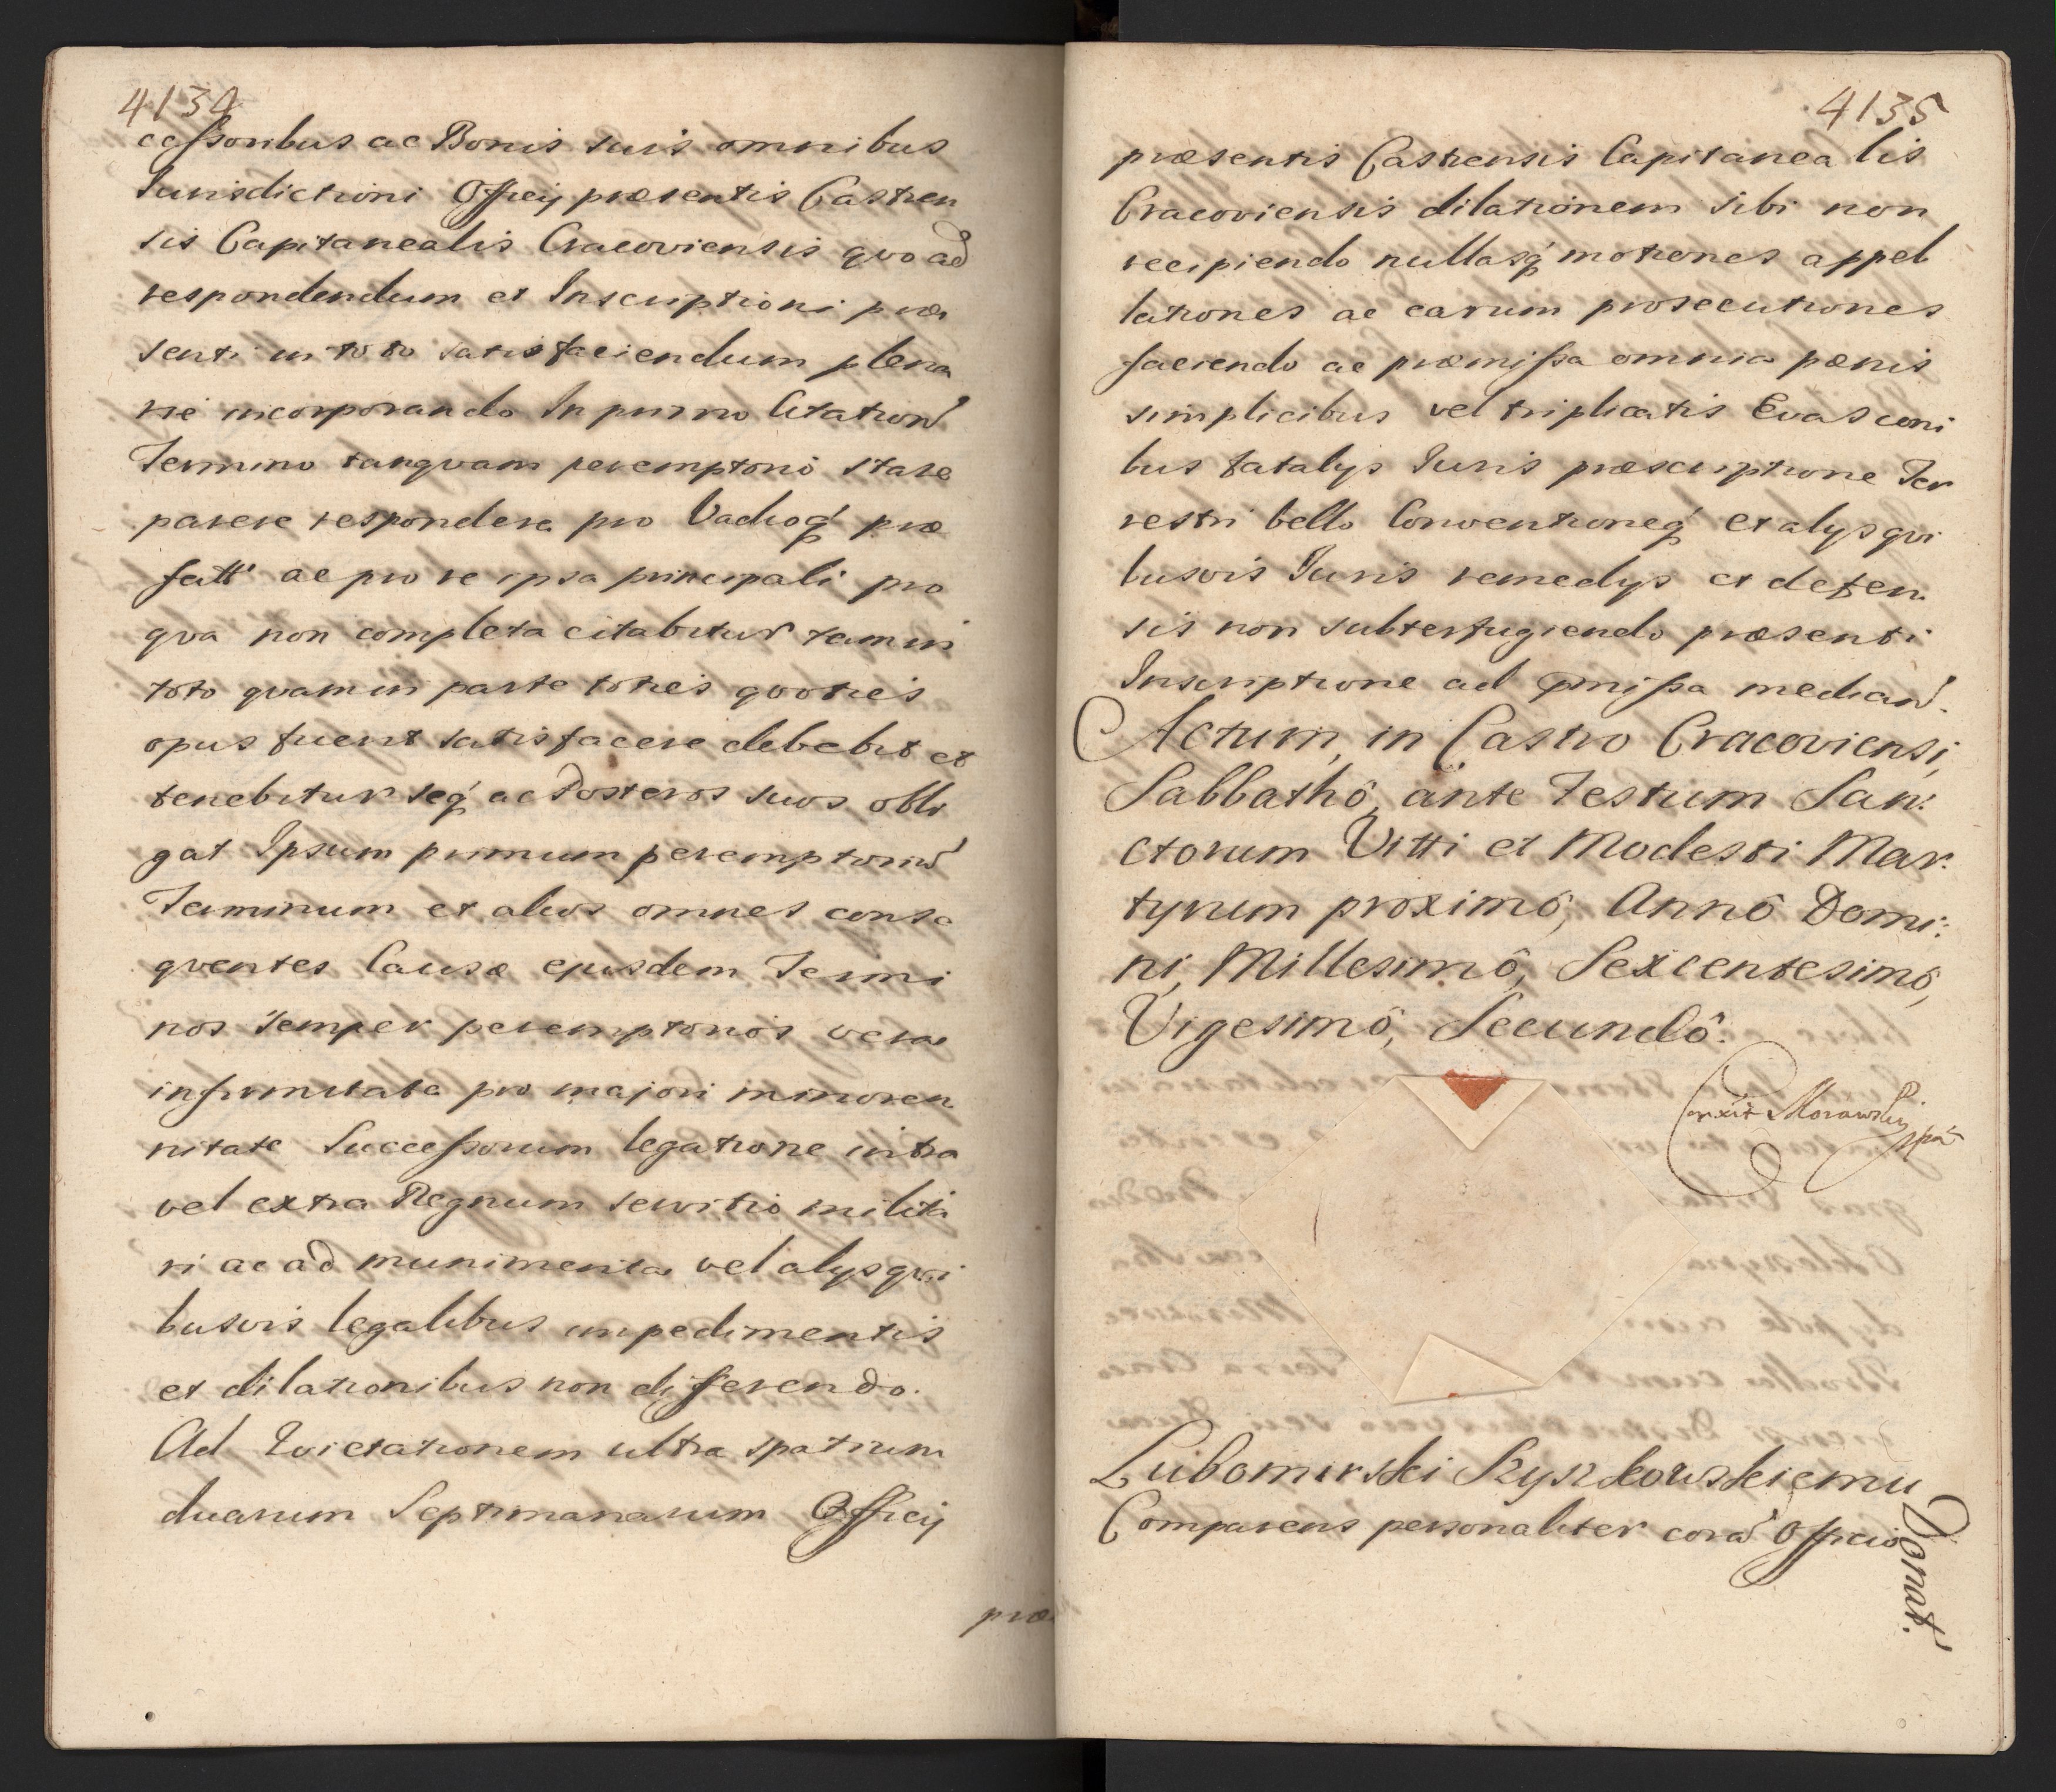 4134
cessoribus ac Bonis suis omnibus
Jurisdictioni Officij præsentis Castren
sis Capitanealis Cracoviensis qvo ad
respondendum et Inscriptioni præ
senti in toto satisfaciendum plena
rie incorporando In primo Citation̄
Termino tanqvam peremptorio stare
parere respondere pro Vadioq́ præ
fatt ac pro re ipsa principali pro
qva non completa citabitur tam in
toto qvam in parte toties qvoties
opus fuerit satisfacere debebit et
tenebitur seq́ ac Posteros suos obli
gat Ipsum primum peremptoriū
Terminum et alios omnes conse
qventes Causæ ejusdem Termi
nos semper peremptorios vera
infirmitate pro majori minoren
nitate Successorum legatione intra
vel extra Regnum servitio milita
ri ac ad munimenta vel alijs qvi
busvis legalibus impedimentis
et dilationibus non differendo.
Ad Evictationem ultra spatium
duarum Septimanarum Officij
præ
4135
præsentis Castrensis Capitanealis
Cracoviensis dilationem sibi non
recipiendo nullasq́ motiones appel
lationes ac earum prosecutiones
faciendo ac præmissa omnia pænis
simplicibus vel triplicatis Evasconi
bus fatalijs Juris præscriptione Ter
restri bello Conventioneq́ et alijs qvi
busvis Juris remedijs et defen
sis non subterfugiendo præsenti
Inscriptione ad p̄missa median̄.
Actum, in Castro Cracoviensi,
Sabbathô, ante Festum San:
ctorum Vitti et Modesti Mar:
tyrum proximô, Annô Domi:
ni, Millesimô, Sexcentesimô,
Vigesimô, Secundô.
Conxit Morawski
mpá
Lubomirski Szyszkowskiemu
Donat.
Comparens personaliter corā Officio